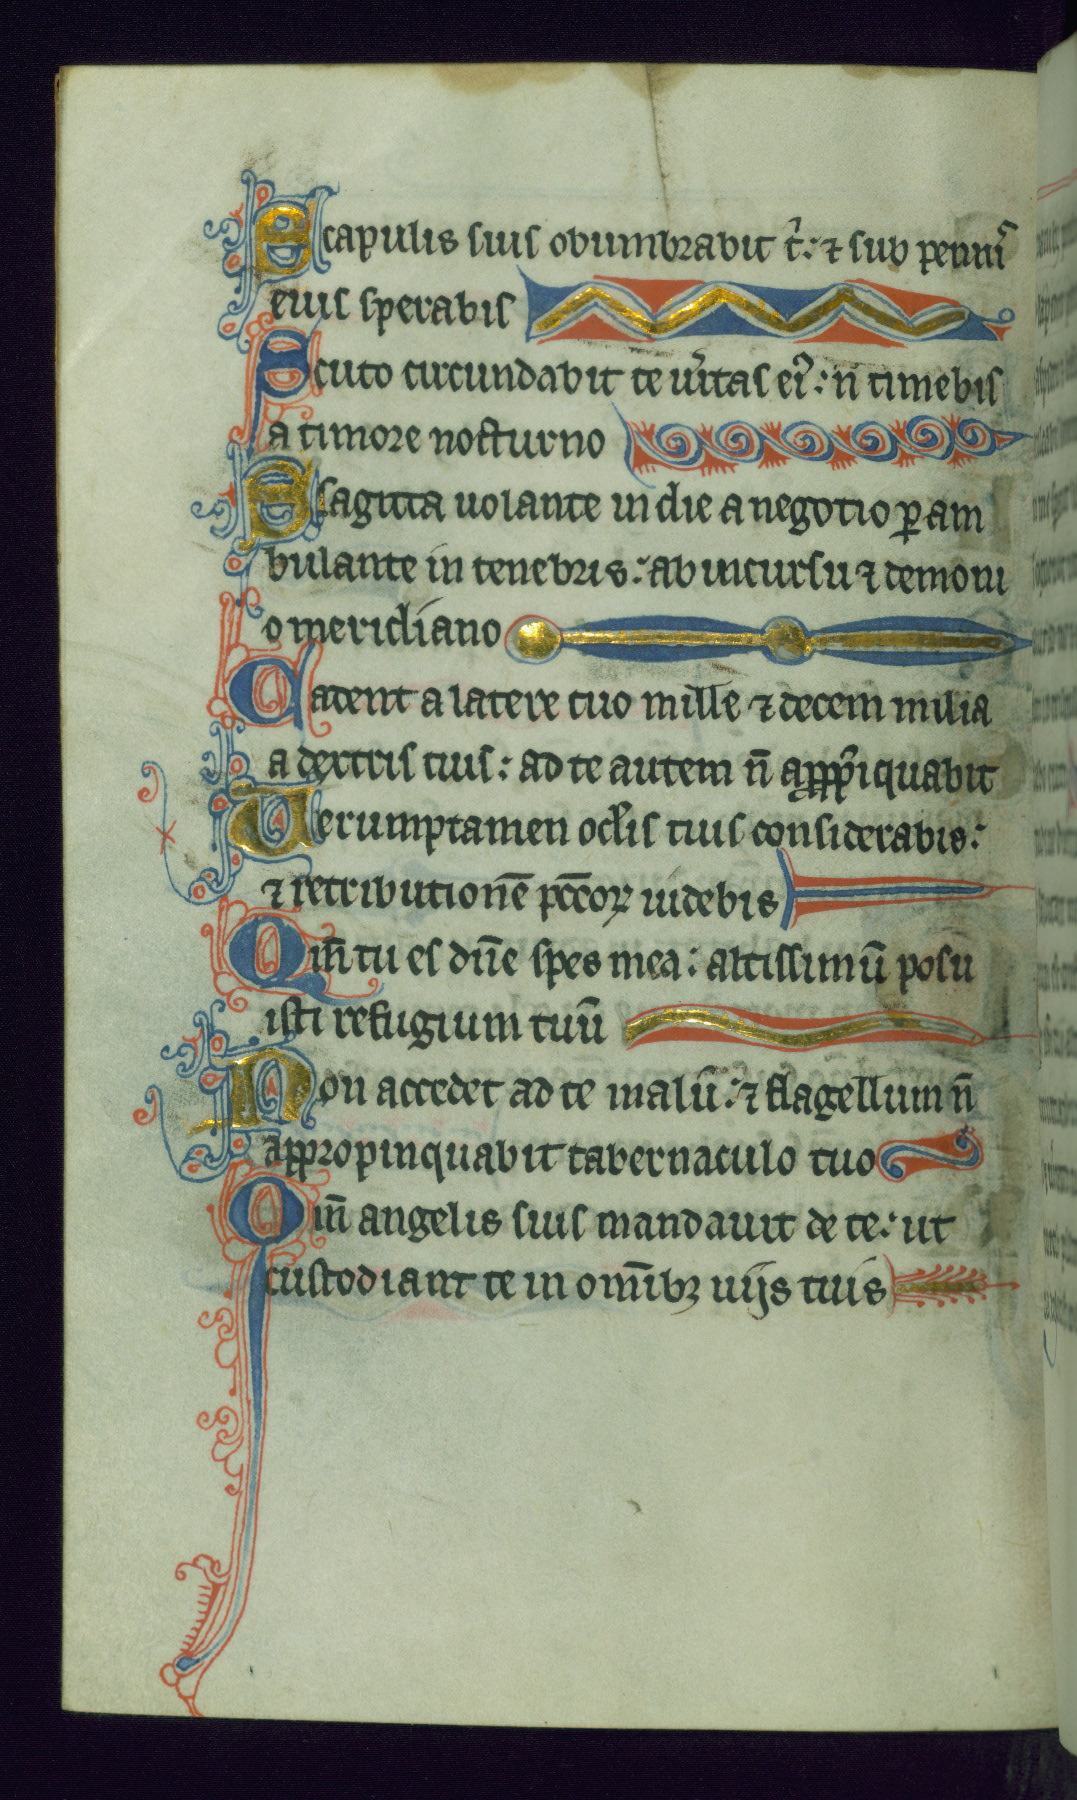 Scapulis suis obumbrabit t̾: ⁊ sub penni᷒
eius sperabis
Scuto circundabit te ūitas ei᷒: n̄ timebis
a timore nocturno
A sagitta uolante in die a negotio ꝑam
bulante in tenebris: ab incursu ⁊ demoni
o meridiano
Cadent a latere tuo mille ⁊ decem milia
a dextris tuis: ad te autem n̄ appp̄iquabit
Uerumptamen oclis tuis considerabis:
⁊ retributionē pccōꝝ uidebis
Qm̄ tu es dn̄e spes mea: altissimū posu
isti refugium tuū
Non accedet ad te malū: ⁊ flagellum n̄
appropinquabit tabernaculo tuo
Qm̄ angelis suis mandauit de te: ut
custodiant te in om̄ibꝫ uijs tuis